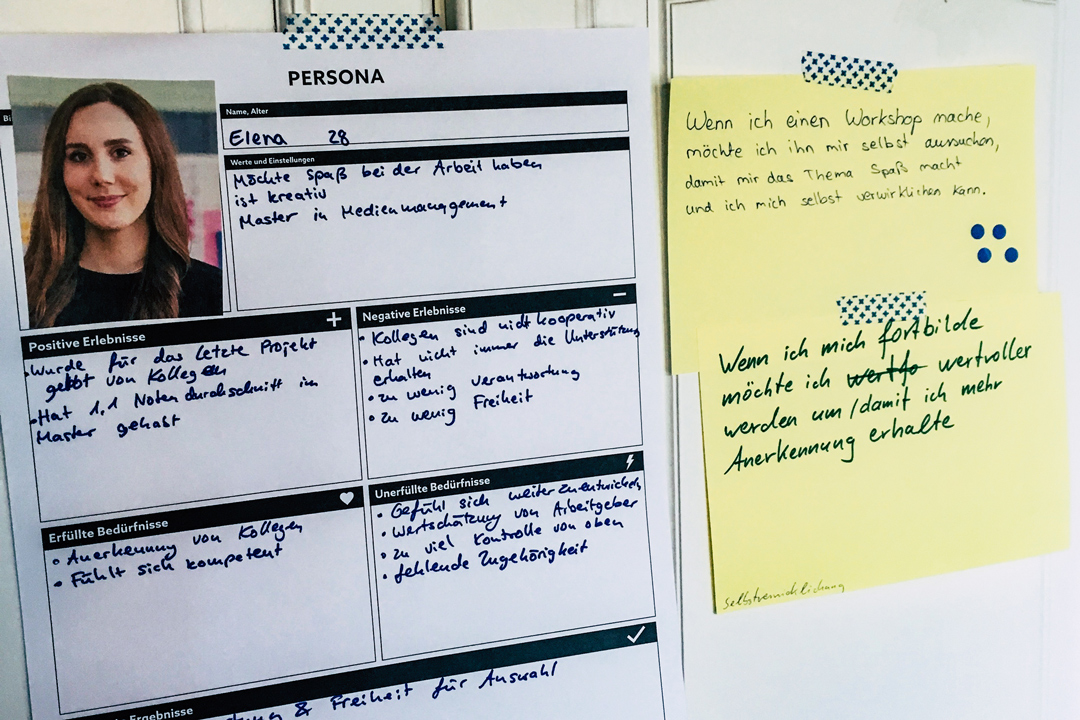 PERSONA
Bi
Name, Alter
Elena 28
Werte und Einstellungen
Möchte Spaß bei der Arbeit haben
ist kreativ
Master in Medienmanagement
Positive Erlebnisse
• Wurde für das letzte Projekt
gelobt von Kollegen
• Hat 1,1 Notendurchschnitt im
Master gehabt
Negative Erlebnisse
• Kollegen sind nicht kooperativ
• Hat nicht immer die Unterstützung
erhalten
• zu wenig verantwortung
• zu wenig Freiheit
Erfüllte Bedürfnisse
• Anerkennung von Kollegen
• Fühlt sich kompetent
Unerfüllte Bedürfnisse
• Gefühl sich weiterzuentwickeln
• Wertschätzung von Arbeitgeber
• zu viel Kontrolle von oben
• fehlende Zugehörigkeit
Ergebnisse
& Freiheit für Auswahl
Wenn ich einen Workshop mache,
möchte ich ihn mir selbst aussuchen,
damit mir das Thema Spaß macht
und ich mich selbst verwirklichen kann.
Wenn ich mich fortbilde
möchte ich wertfo wertvoller
werden um/damit ich mehr
Anerkennung erhalte
Selbstverwirklichung